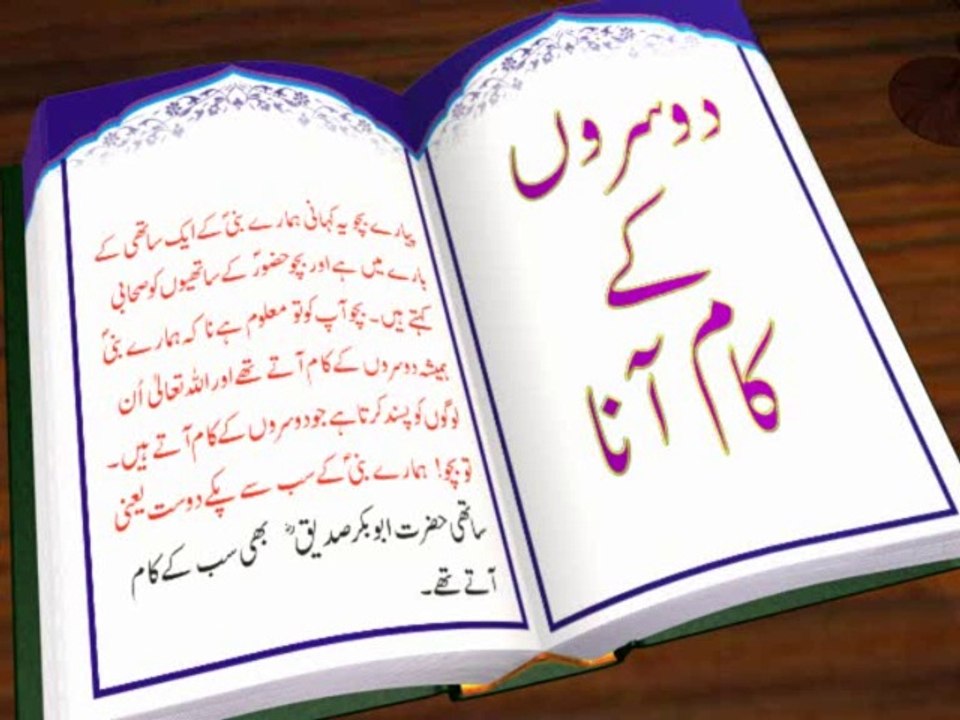 دوسروں
کے
کام آنا
پیارے بچو یہ کہانی ہمارے نبیؐ کے ایک ساتھی کے
بارے میں ہے اور بچو حضورؐ کے ساتھیوں کو صحابی
کہتے ہیں۔ بچو آپ کو تو معلوم ہے نا کہ ہمارے نبیؐ
ہمیشہ دوسروں کے کام آتے تھے اور اللہ تعالیٰ اُن
لوگوں کو پسند کرتا ہے جو دوسروں کے کام آتے ہیں۔
تو بچو! ہمارے نبیؐ کے سب سے پکے دوست یعنی
ساتھی حضرت ابوبکر صدیقؓ بھی سب کے کام
آتے تھے۔